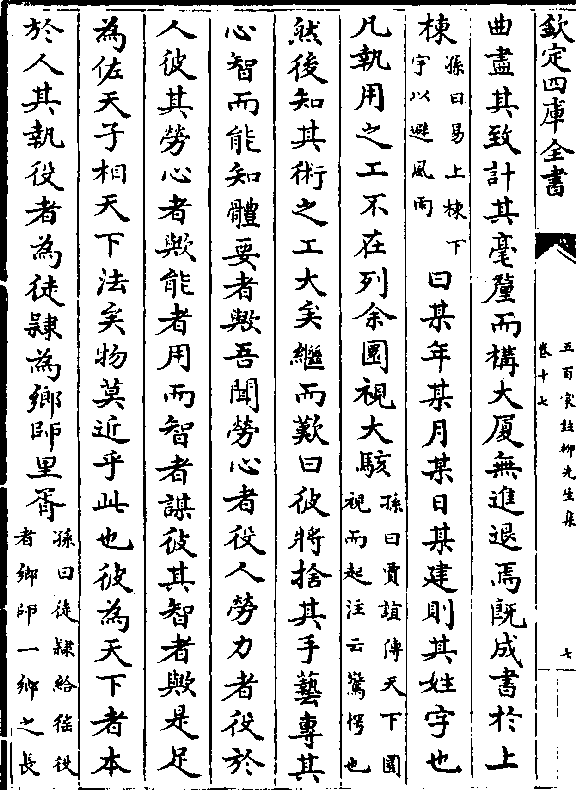 欽定四庫全書
五百家註柳先生集
卷十七
七
曲盡其致計其毫釐而構大厦無進退焉既成書於上
棟
孫曰易上棟下
宇以避風雨
曰某年某月某日某建則其姓字也
凡執用之工不在列余圜視大駭
孫曰賈誼傳天下圜
視而起注云驚愕也
然後知其術之工大矣繼而歎曰彼將捨其手藝專其
心智而能知體要者歟吾聞勞心者役人勞力者役於
人彼其勞心者歟能者用而智者謀彼其智者歟是足
為佐天子相天下法矣物莫近乎此也彼為天下者本
於人其執役者為徒隸為鄉師里胥
孫曰徒隸給徭役
者鄉師一鄉之長